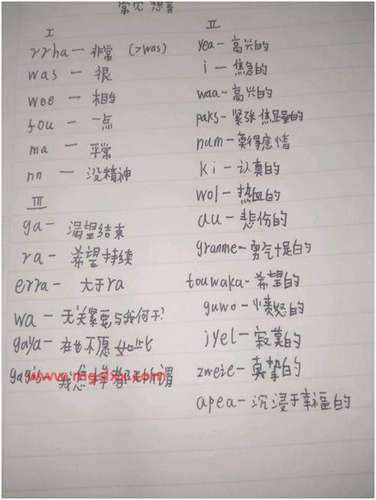 常见
I
rrha — 非常 (>was)
was — 很
wee — 相当
fou — 一点
ma — 平常
nn — 没精神
III
ga — 渴望结束
ra — 希望持续
erra — 大于ra
wa — 无关紧要与我何干?
gaya — 再也不愿如此
gagis — 我怎样都无所谓
II
yea — 高兴的
i — 焦急的
waa — 高兴的
paks — 紧张焦虑的
num — 莫得感情
ki — 认真的
wol — 热血的
au — 悲伤的
granme — 勇气十足的
touwaka — 希望的
guwo — 愤怒的
iyel — 寂寞的
zweie — 真挚的
apea — 沉浸于幸福的